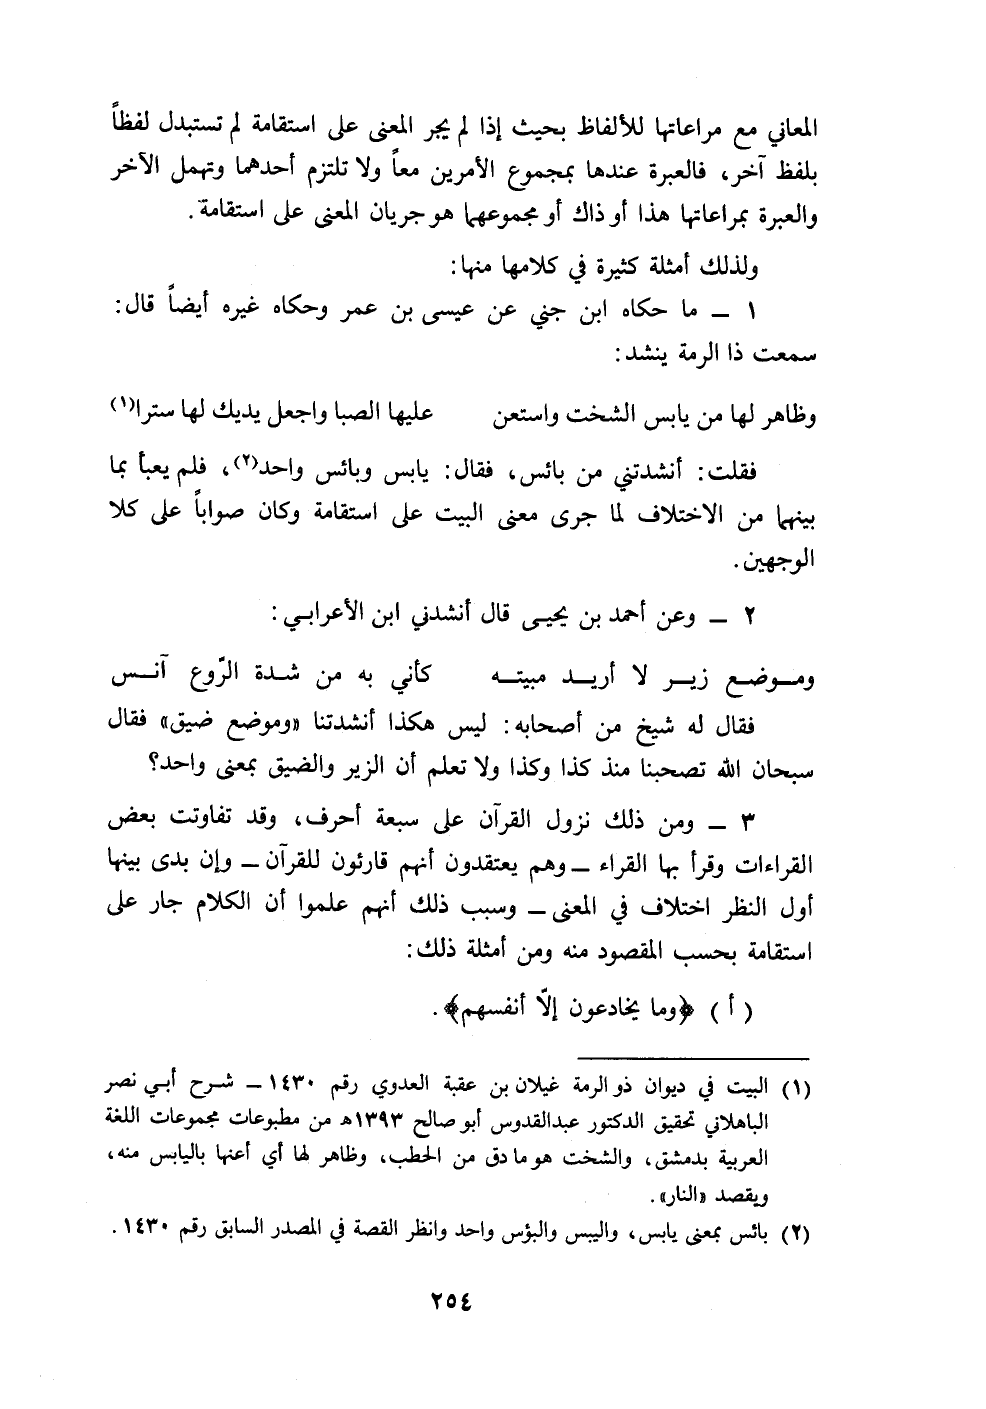 المعاني مع مراعاتها للألفاظ بحيث إذا لم يجر المعنى على استقامة لم تستبدل لفظاً
بلفظ آخر، فالعبرة عندها بمجموع الأمرين معاً ولا تلتزم أحدهما وتهمل الآخر
والعبرة بمراعاتها هذا أو ذاك أو مجموعهما هو جريان المعنى على استقامة.
ولذلك أمثلة كثيرة في كلامها منها:
١ ــ ما حكاه ابن جني عن عيسى بن عمر وحكاه غيره أيضاً قال:
سمعت ذا الرمة ينشد:
وظاهر لها من يابس الشخت واستعن عليها الصبا واجعل يديك لها سترا(١)
فقلت: أنشدتني من بائس، فقال: يابس وبائس واحد(٢)، فلم يعبأ بما
بينهما من الاختلاف لما جرى معنى البيت على استقامة وكان صواباً على كلا
الوجهين.
٢ ــ وعن أحمد بن يحيـى قال أنشدني ابن الأعرابـي:
ومـوضـع زيـر لا أريـد مبيتـه كأني به من شـدة الرّوع آنـس
فقال له شيخ من أصحابه: ليس هكذا أنشدتنا «وموضع ضيق» فقال
سبحان الله تصحبنا منذ كذا وكذا ولا تعلم أن الزير والضيق بمعنى واحد؟
٣ ــ ومن ذلك نزول القرآن على سبعة أحرف، وقد تفاوتت بعض
القراءات وقرأ بها القراء ــ وهم يعتقدون أنهم قارئون للقرآن ــ وإن بدى بينها
أول النظر اختلاف في المعنى ــ وسبب ذلك أنهم علموا أن الكلام جار على
استقامة بحسب المقصود منه ومن أمثلة ذلك:
( أ ) ﴿وما يخادعون إلّا أنفسهم﴾.
(١) البيت في ديوان ذو الرمة غيلان بن عقبة العدوي رقم ١٤٣٠ ــ شرح أبـي نصر
الباهلاني تحقيق الدكتور عبدالقدوس أبو صالح ١٣٩٣هـ من مطبوعات مجموعات اللغة
العربية بدمشق، والشخت هو ما دق من الحطب، وظاهر لها أي أعنها باليابس منه،
ويقصد «النار».
(٢) بائس بمعنى يابس، واليبس والبؤس واحد وانظر القصة في المصدر السابق رقم ١٤٣٠.
٢٥٤